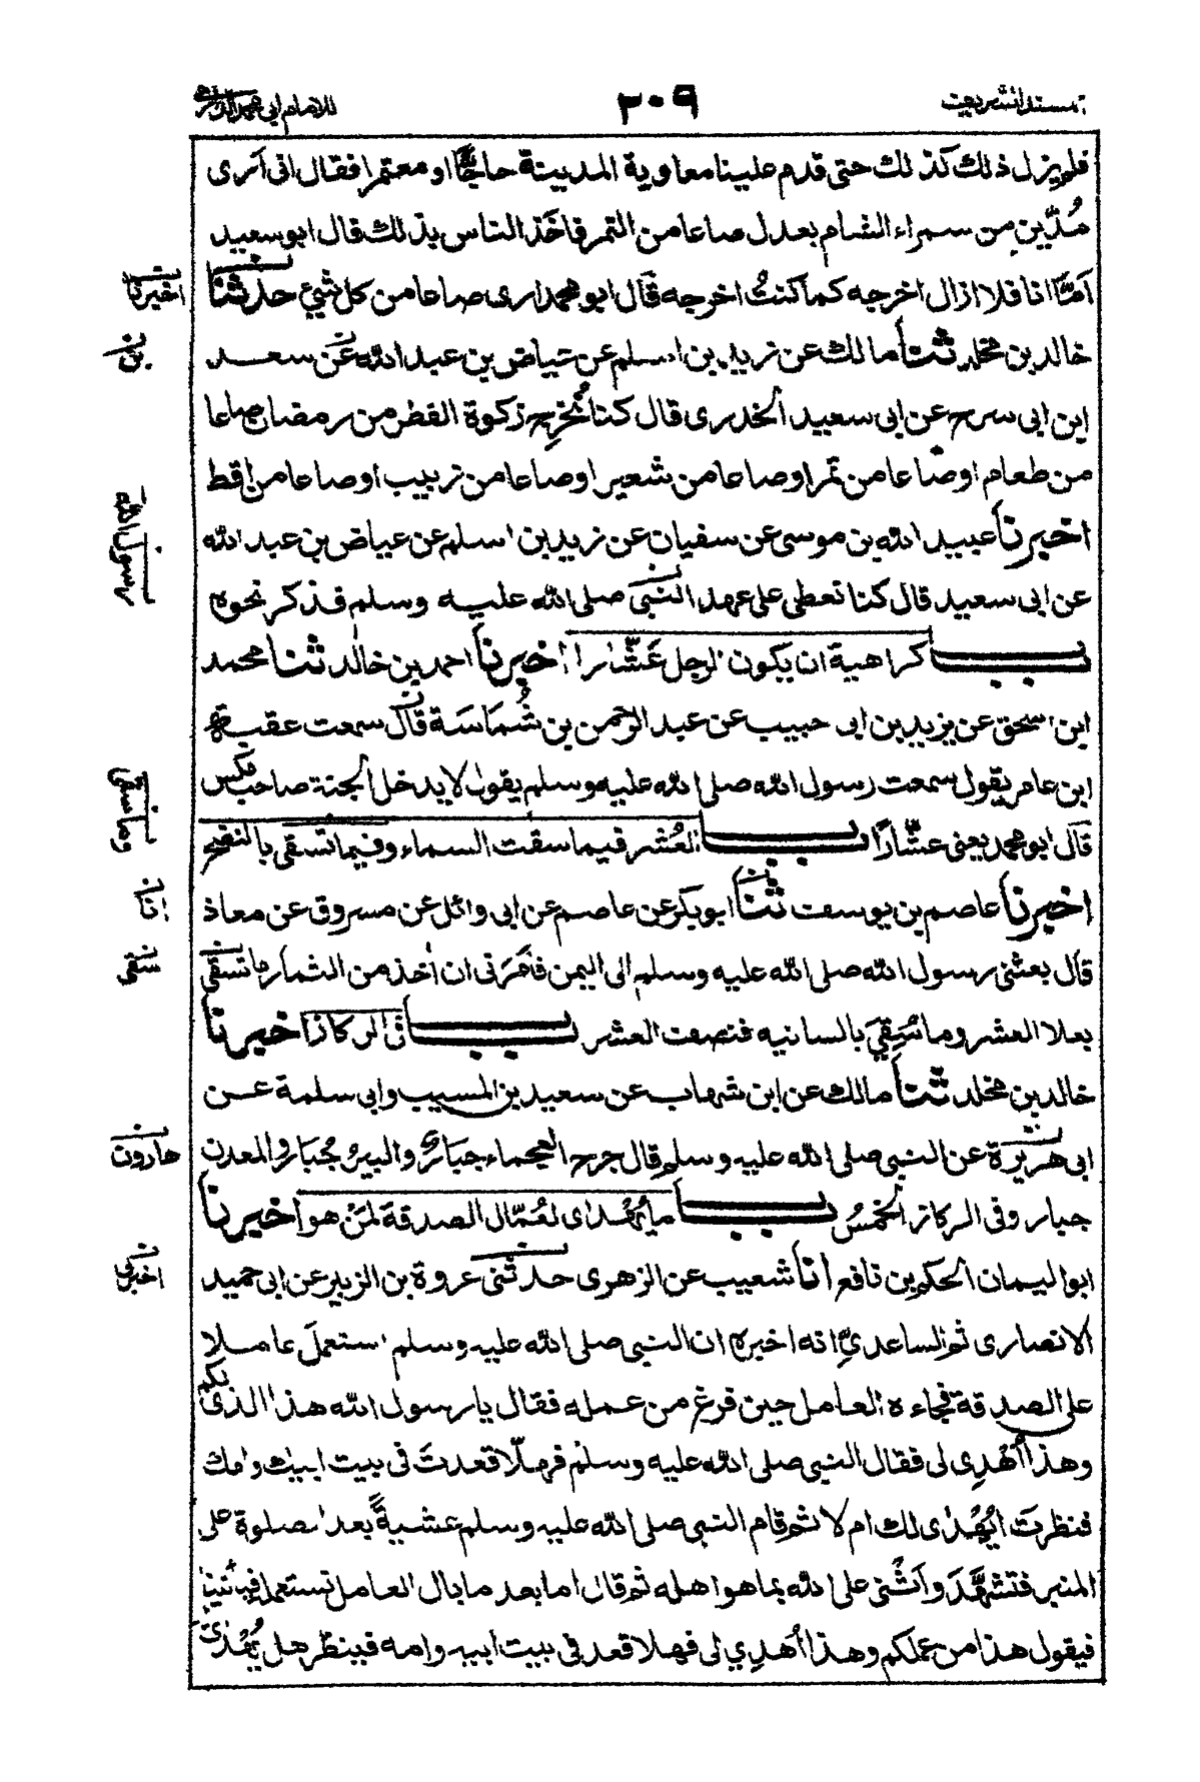 مسند شریف
٢٠٩
للامام ابي محمد الدارمي
فلم يزل ذلك كذلك حتى قدم علينا معاوية المدينة حاجًّا او معتمرا فقال انى اَرى
مُدَّين من سمراء الشام بعدل صاعا من التمر فاخَذ الناس بذلك قال ابو سعيد
اَمَّا انا فلا ازال اخرجه كما كنتُ اخرجه قَال ابو محمد ارى صاعا من كل شيئ حدثنا
اخبرنا
خالد بن مخلد ثنا مالك عن زيد بن اسلم عن عياض بن عبد الله عن سعد
بن
ابن ابى سرح عن ابى سعيد الخدرى قال كنا نُخرِج زكوة الفطر من رمضان صاعا
من طعام او صاعا من تمر او صاعا من شعير او صاعا من زبيب او صاعا من اقط
اخبرنا عبيد الله بن موسى عن سفيان عن زيد بن اسلم عن عياض بن عبد الله
رسول الله
عن ابى سعيد قال كنا نعطى على عهد النبى صلى الله عليه وسلم فذكر نحوه
باب كراهية ان يكون الرجل عَشّارا اخبرنا احمد بن خالد ثنا محمد
ابن اسحق عن يزيد بن ابى حبيب عن عبد الرحمن بن شُمَاسَة قال سمعت عقبة
ابن عامر يقول سمعت رسول الله صلى الله عليه وسلم يقول لا يدخل الجنة صاحب مكس
قَال ابو محمد يعنى عشّارًا باب العُشر فيما سقت السماء وفيما تسقى بالنضح
وما سقى
اخبرنا عاصم بن يوسف ثنا ابو بكر عن عاصم عن ابى وائل عن مسروق عن معاذ
قال بعثنى رسول الله صلى الله عليه وسلم الى اليمن فاَمَرَنى ان اٰخذ من الثمار ما تسقى
سقى
بعلا العشر وما سُقِيَ بالسانيه فنصف العشر باب فى الركاز اخبرنا
خالد بن مخلد ثنا مالك عن ابن شهاب عن سعيد بن المسيب وابى سلمة عن
ابى هريرة عن النبى صلى الله عليه وسلم قال جرح العجماء جبارٌ والبير جُبار والمعدن
هارون
جبار وفى الركاز الخمسُ باب ما يُهدٰى لعُمّال الصدقة لمَنْ هو اخبرنا
ابو اليمان الحكم بن نافع انا شعيب عن الزهرى حدثنى عروة بن الزبير عن ابى حميد
اخبرنى
الانصارى ثم الساعدىِّ انه اخبره ان النبى صلى الله عليه وسلم استعملَ عاملا
على الصدقة فجاءه العامل حين فرغ من عمله فقال يا رسول الله هذا الذى لكم
وهذا اُهْدِى لى فقال النبى صلى الله عليه وسلم فهلّا قعدتَ فى بيت ابيك وامك
فنظرتَ ايُهْدٰى لك ام لا ثم قام النبى صلى الله عليه وسلم عشيةً بعد الصلوة على
المنبر فتشهَّدَ واَثْنى على الله بما هو اهله ثم قال اما بعد ما بال العامل نستعمله فيأتينا
فيقول هذا من عملكم وهذا اُهدِي لى فهلا قعد فى بيت ابيه وامه فينظر هل يُهْدٰى